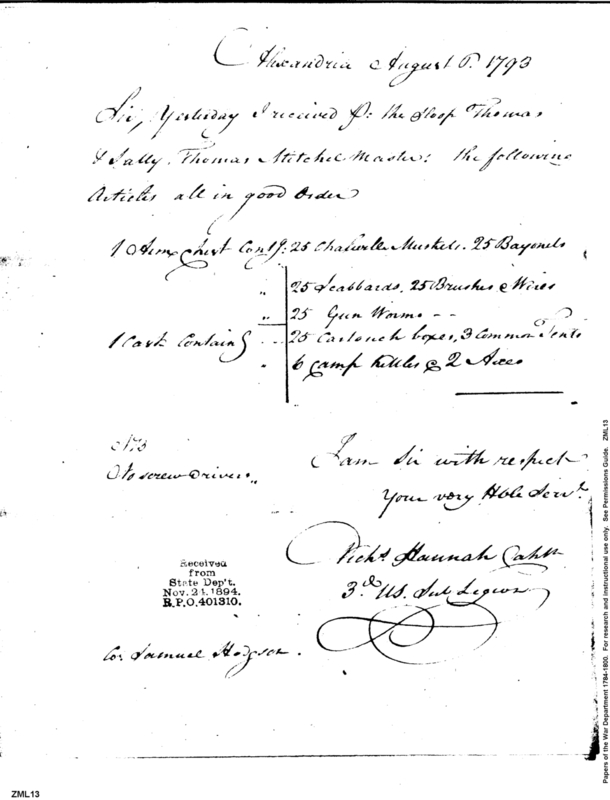 Alexandria August 6th. 1793
Sir, Yesterday I received pr. the Sloop Thomas
& Sally, Thomas Mitchel Master: the following
Articles all in good Order
1 Arm Chest Contg: 25 Muskets. 25 Bayonets
" 25 Scabbards. 25 Brushes & Wires
" 25 Gun Worms - -
1 Cask Containg - - - 25 Cartouch boxes, 3 Common Tents
" 6 Camp Kettles & 2 Axes
NB
No screw drivers "
I am Sir with respect
Your very Hble Servt.
Nichs. Hannah Captn
3d. US. Sub Legion
Received
from
State Dep't.
Nov. 21. 1894.
R.P.O. 401310.
Samuel Hodgson.
ZML13
Papers of the War Department 1784-1800. For research and instructional use only. See Permissions Guide. ZML13